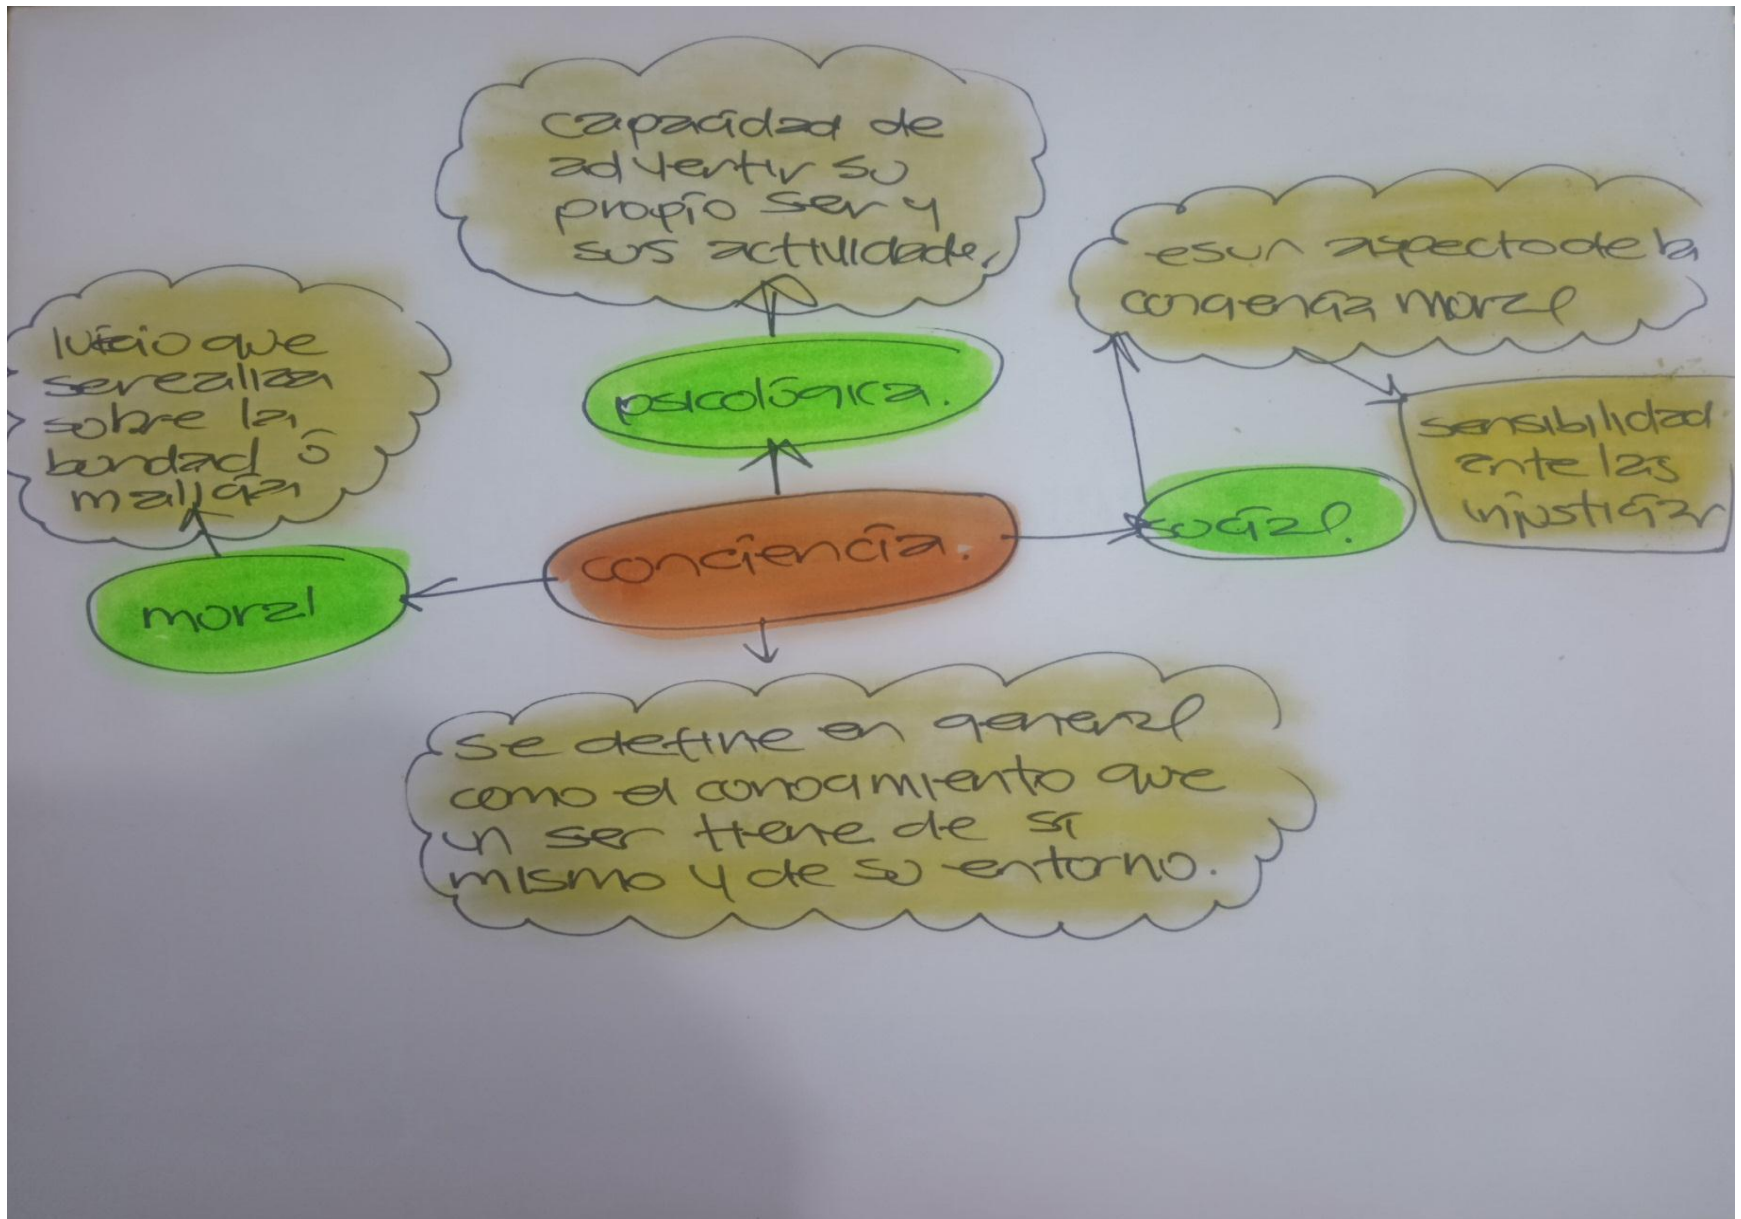 capacidad de
advertir su
propio ser y
sus actividade,
es un aspecto de la
conciencia moral
juicio que
se realiza
sobre la
bondad o
malicia
psicológica.
sensibilidad
ante las
injusticias
social.
conciencia.
moral
se define en general
como el conocimiento que
un ser tiene de sí
mismo y de su entorno.